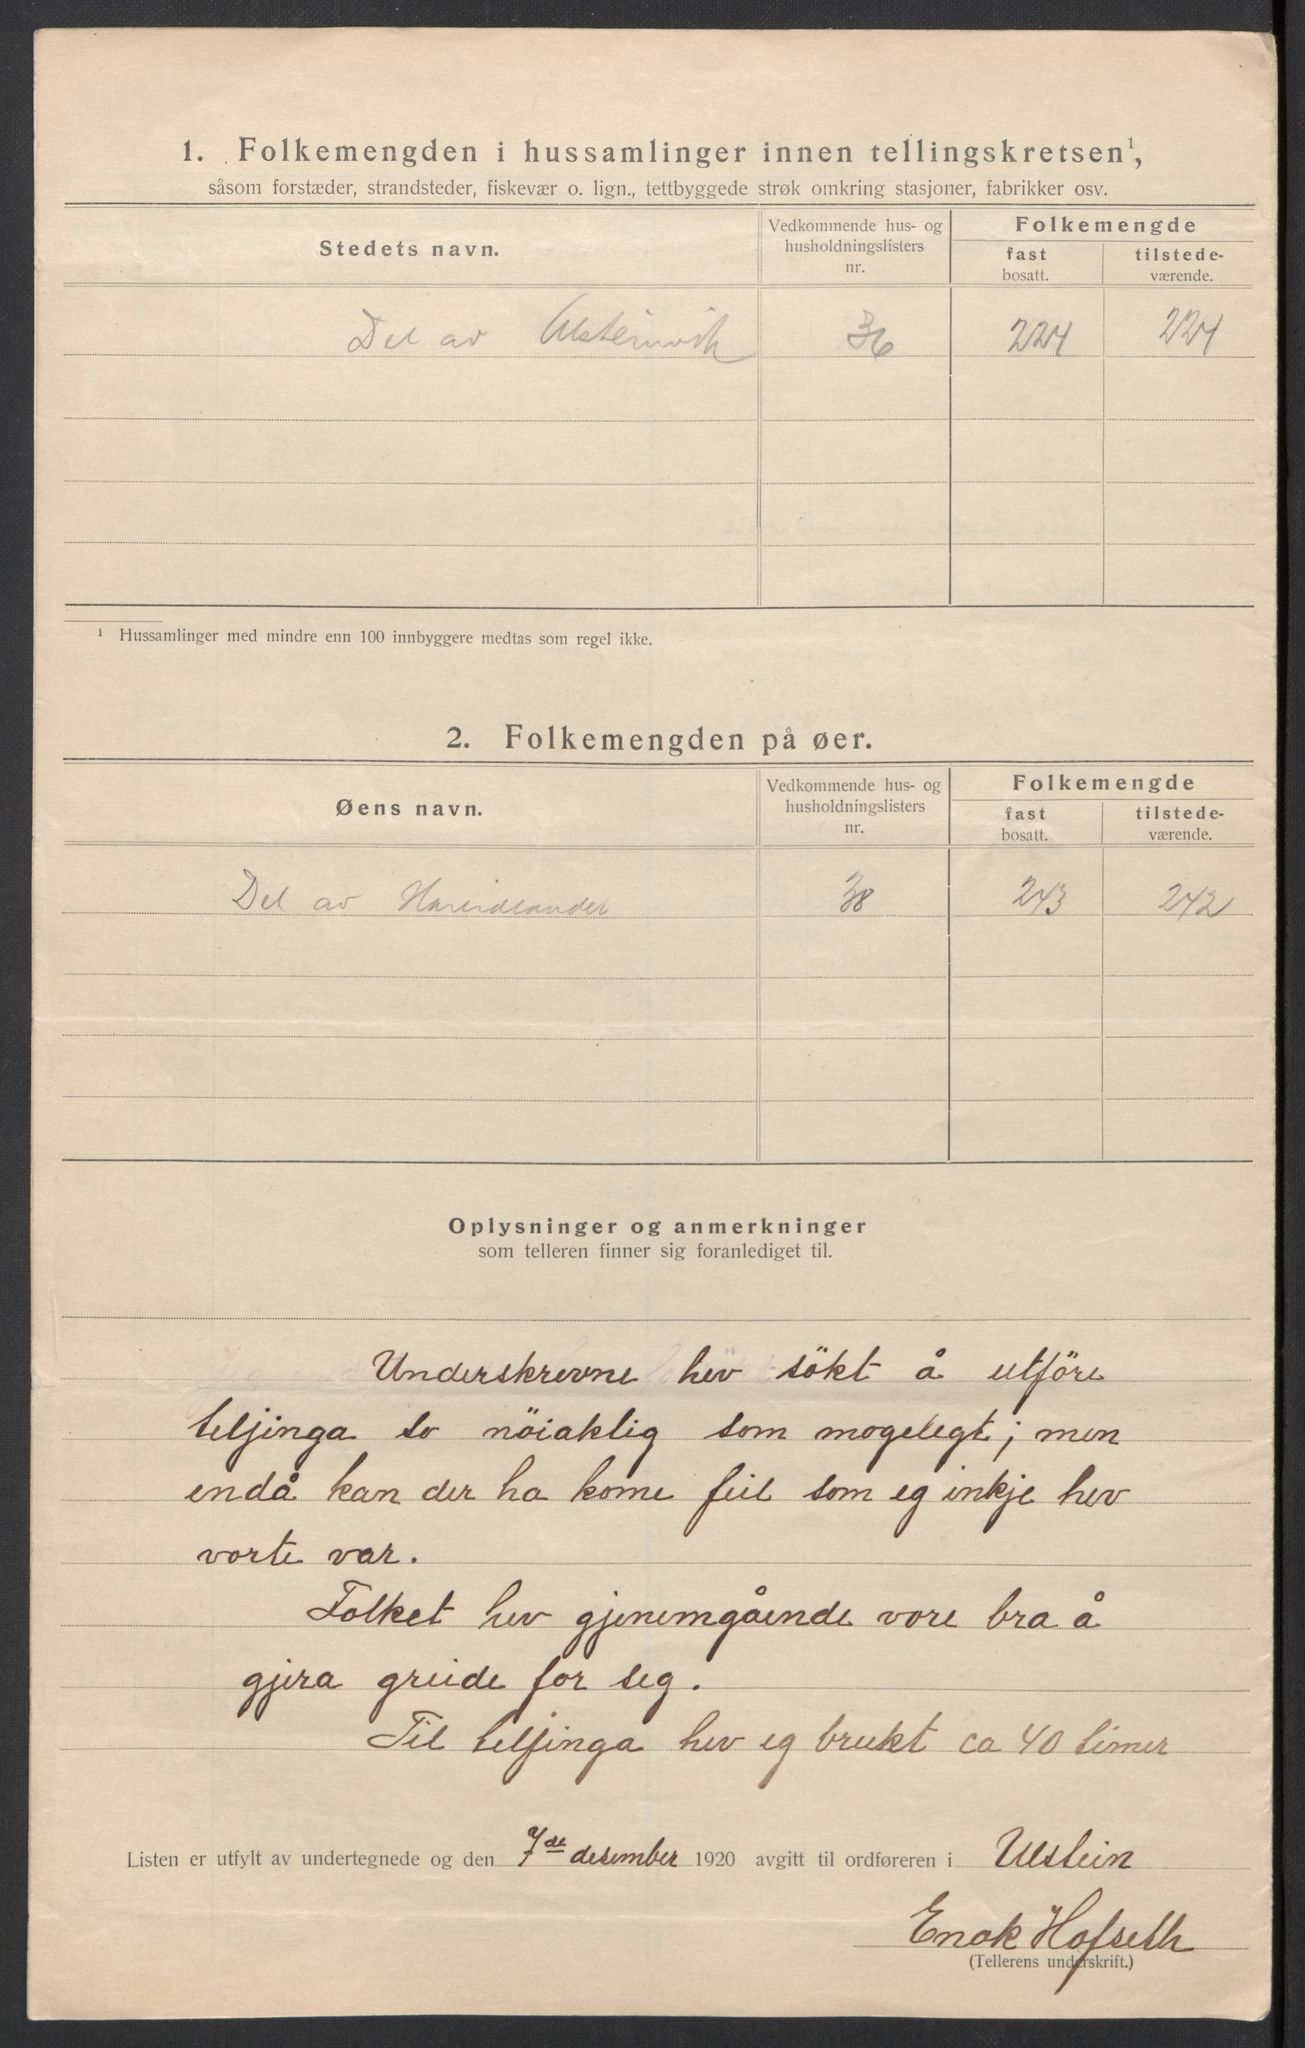 1. Folkemengden i hussamlinger innen tellingskretsen¹,
såsom forstæder, strandsteder, fiskevær o. lign., tettbyggede strøk omkring stasjoner, fabrikker osv.
Stedets navn.
Vedkommende hus- og husholdningslisters nr.
Folkemengde
fast bosatt.
tilstede-værende.
Del av Ulsteinvik 36 224 224
¹ Hussamlinger med mindre enn 100 innbyggere medtas som regel ikke.
2. Folkemengden på øer.
Øens navn.
Vedkommende hus- og husholdningslisters nr.
Folkemengde
fast bosatt.
tilstede-værende.
Del av Hareidlandet 38 243 242
Oplysninger og anmerkninger
som telleren finner sig foranlediget til.
Underskrevne hev sökt å utföre
teljinga so nöiaktig som mogelegt; men
endå kan der ha kome feil som eg inkje hev
vorte var.
Folket hev gjenemgående vore bra å
gjera greide for seg.
Til teljinga hev eg brukt ca 40 timer
Listen er utfylt av undertegnede og den 7de desember 1920 avgitt til ordføreren i Ulstein
Enok Hofseth
(Tellerens underskrift.)